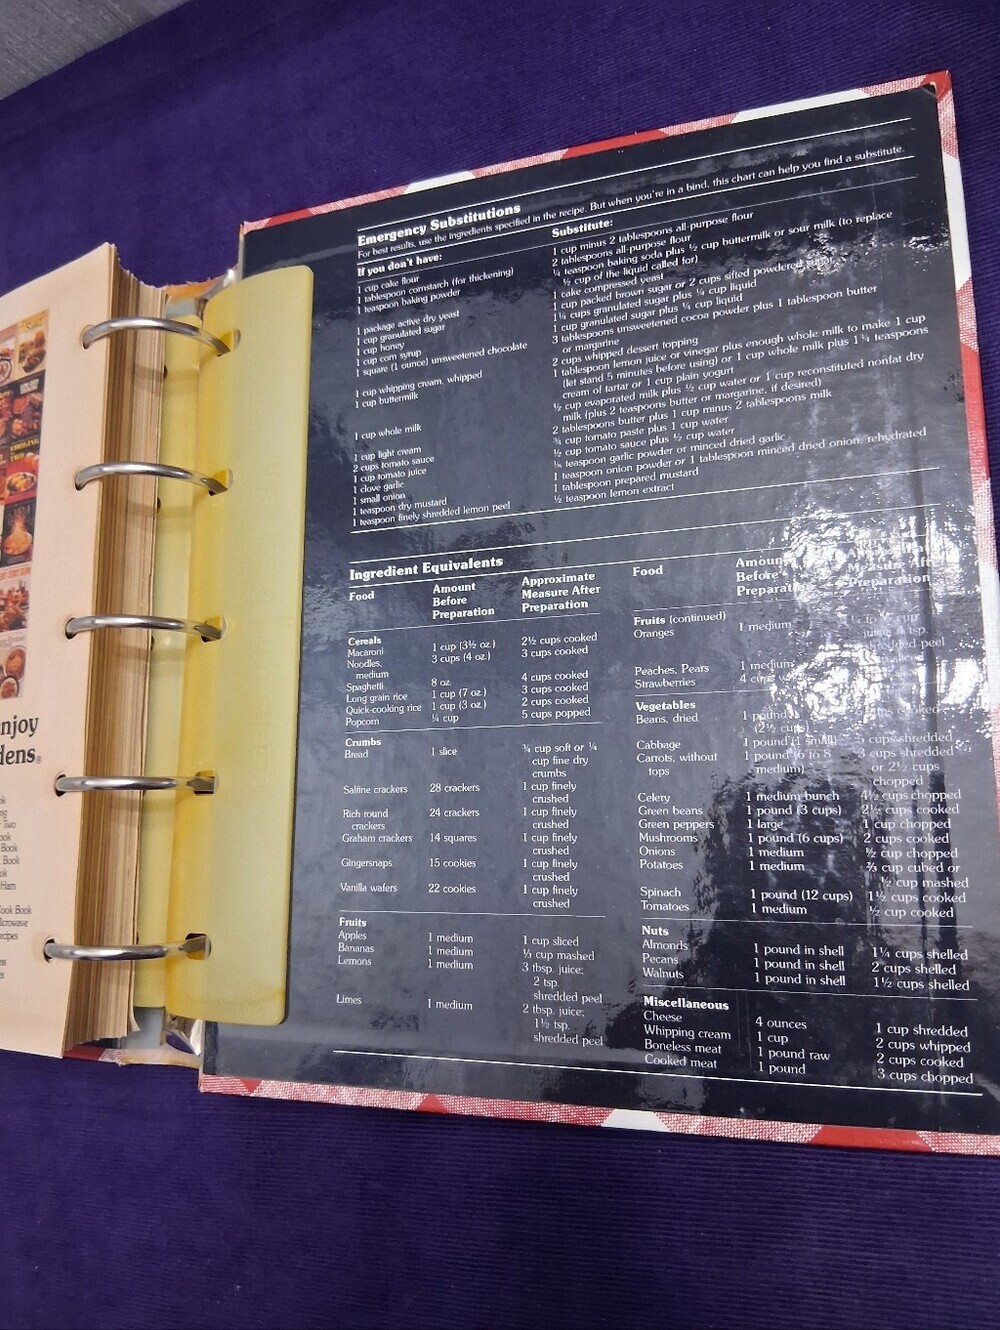 njoy
dens®
ok
ng
r Two
ook
Book
Book
ok
Ham
Cook Book
icrowave
ecipes
ns
s
Emergency Substitutions
For best results, use the ingredients specified in the recipe. But when you're in a bind, this chart can help you find a substitute.
If you don't have:
Substitute:
1 cup cake flour
1 cup minus 2 tablespoons all-purpose flour
1 tablespoon cornstarch (for thickening)
2 tablespoons all-purpose flour
1 teaspoon baking powder
¼ teaspoon baking soda plus ½ cup buttermilk or sour milk (to replace
½ cup of the liquid called for)
1 package active dry yeast
1 cake compressed yeast
1 cup granulated sugar
1 cup packed brown sugar or 2 cups sifted powdered sugar
1 cup honey
1¼ cups granulated sugar plus ¼ cup liquid
1 cup corn syrup
1 cup granulated sugar plus ¼ cup liquid
1 square (1 ounce) unsweetened chocolate
3 tablespoons unsweetened cocoa powder plus 1 tablespoon butter
or margarine
1 cup whipping cream, whipped
2 cups whipped dessert topping
1 cup buttermilk
1 tablespoon lemon juice or vinegar plus enough whole milk to make 1 cup
(let stand 5 minutes before using) or 1 cup whole milk plus 1¾ teaspoons
cream of tartar or 1 cup plain yogurt
1 cup whole milk
½ cup evaporated milk plus ½ cup water or 1 cup reconstituted nonfat dry
milk (plus 2 teaspoons butter or margarine, if desired)
1 cup light cream
2 tablespoons butter plus 1 cup minus 2 tablespoons milk
2 cups tomato sauce
¾ cup tomato paste plus 1 cup water
1 cup tomato juice
½ cup tomato sauce plus ½ cup water
1 clove garlic
⅛ teaspoon garlic powder or minced dried garlic
1 small onion
1 teaspoon onion powder or 1 tablespoon minced dried onion, rehydrated
1 teaspoon dry mustard
1 tablespoon prepared mustard
1 teaspoon finely shredded lemon peel
½ teaspoon lemon extract
Ingredient Equivalents
Food
Amount
Before
Preparation
Approximate
Measure After
Preparation
Cereals
Macaroni 1 cup (3½ oz.) 2½ cups cooked
Noodles, 3 cups (4 oz.) 3 cups cooked
medium
Spaghetti 8 oz. 4 cups cooked
Long grain rice 1 cup (7 oz.) 3 cups cooked
Quick-cooking rice 1 cup (3 oz.) 2 cups cooked
Popcorn ¼ cup 5 cups popped
Crumbs
Bread 1 slice ¾ cup soft or ¼
cup fine dry
crumbs
Saltine crackers 28 crackers 1 cup finely
crushed
Rich round 24 crackers 1 cup finely
crackers crushed
Graham crackers 14 squares 1 cup finely
crushed
Gingersnaps 15 cookies 1 cup finely
crushed
Vanilla wafers 22 cookies 1 cup finely
crushed
Fruits
Apples 1 medium 1 cup sliced
Bananas 1 medium ⅓ cup mashed
Lemons 1 medium 3 tbsp. juice;
2 tsp.
shredded peel
Limes 1 medium 2 tbsp. juice;
1½ tsp.
shredded peel
Food
Amount
Before
Preparation
Measure After
Preparation
Fruits (continued)
Oranges 1 medium
juice; 4 tsp.
shredded peel
Peaches, Pears 1 medium
Strawberries 4 cups
Vegetables
Beans, dried 1 pound cooked
(2½ cups)
Cabbage 1 pound (1 small) 5 cups shredded
Carrots, without 1 pound (6 to 8 3 cups shredded
tops medium) or 2½ cups
chopped
Celery 1 medium bunch 4½ cups chopped
Green beans 1 pound (3 cups) 2½ cups cooked
Green peppers 1 large 1 cup chopped
Mushrooms 1 pound (6 cups) 2 cups cooked
Onions 1 medium ½ cup chopped
Potatoes 1 medium ⅔ cup cubed or
½ cup mashed
Spinach 1 pound (12 cups) 1½ cups cooked
Tomatoes 1 medium ½ cup cooked
Nuts
Almonds 1 pound in shell 1¼ cups shelled
Pecans 1 pound in shell 2 cups shelled
Walnuts 1 pound in shell 1½ cups shelled
Miscellaneous
Cheese 4 ounces 1 cup shredded
Whipping cream 1 cup 2 cups whipped
Boneless meat 1 pound raw 2 cups cooked
Cooked meat 1 pound 3 cups chopped